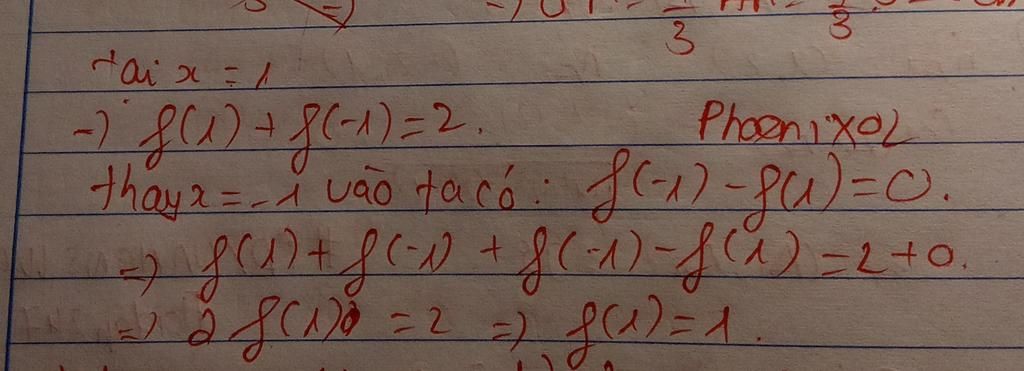 tại x = 1
-) f(1) + f(-1) = 2.
PhoenixOL
thay x = -1 vào ta có: f(-1) - f(1) = 0.
=) f(1) + f(-1) + f(-1) - f(1) = 2 + 0.
=) 2 f(1) = 2 =) f(1) = 1.